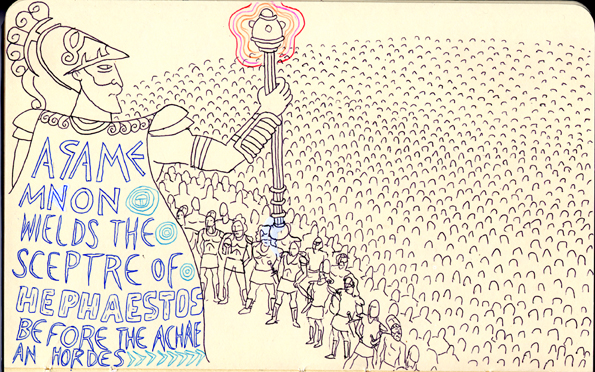 AGAME
MNON
WIELDS THE
SCEPTRE OF
HEPHAESTOS
BEFORE THE ACHAE
AN HORDES